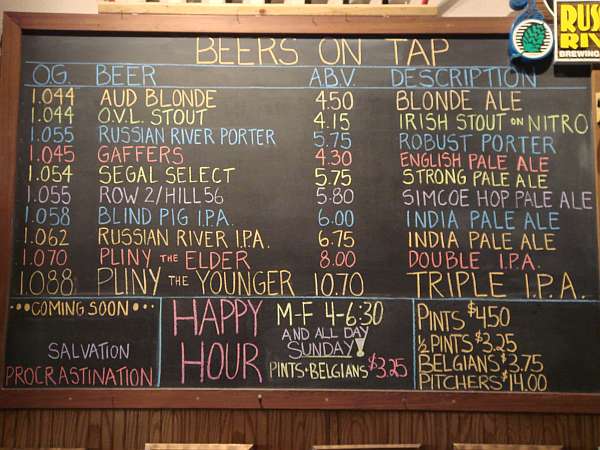 RUS
RIV
BREWING
BEERS ON TAP
O.G. BEER A.B.V. DESCRIPTION
1.044 AUD BLONDE 4.50 BLONDE ALE
1.044 O.V.L. STOUT 4.15 IRISH STOUT ON NITRO
1.055 RUSSIAN RIVER PORTER 5.75 ROBUST PORTER
1.045 GAFFERS 4.30 ENGLISH PALE ALE
1.054 SEGAL SELECT 5.75 STRONG PALE ALE
1.055 ROW 2/HILL 56 5.80 SIMCOE HOP PALE ALE
1.058 BLIND PIG I.P.A. 6.00 INDIA PALE ALE
1.062 RUSSIAN RIVER I.P.A. 6.75 INDIA PALE ALE
1.070 PLINY THE ELDER 8.00 DOUBLE I.P.A.
1.088 PLINY THE YOUNGER 10.70 TRIPLE I.P.A.
••COMING SOON••
SALVATION
PROCRASTINATION
HAPPY
HOUR
M-F 4-6:30
AND ALL DAY
SUNDAY!
PINTS•BELGIANS $3.25
PINTS $4.50
½ PINTS $3.25
BELGIANS $3.75
PITCHERS $14.00